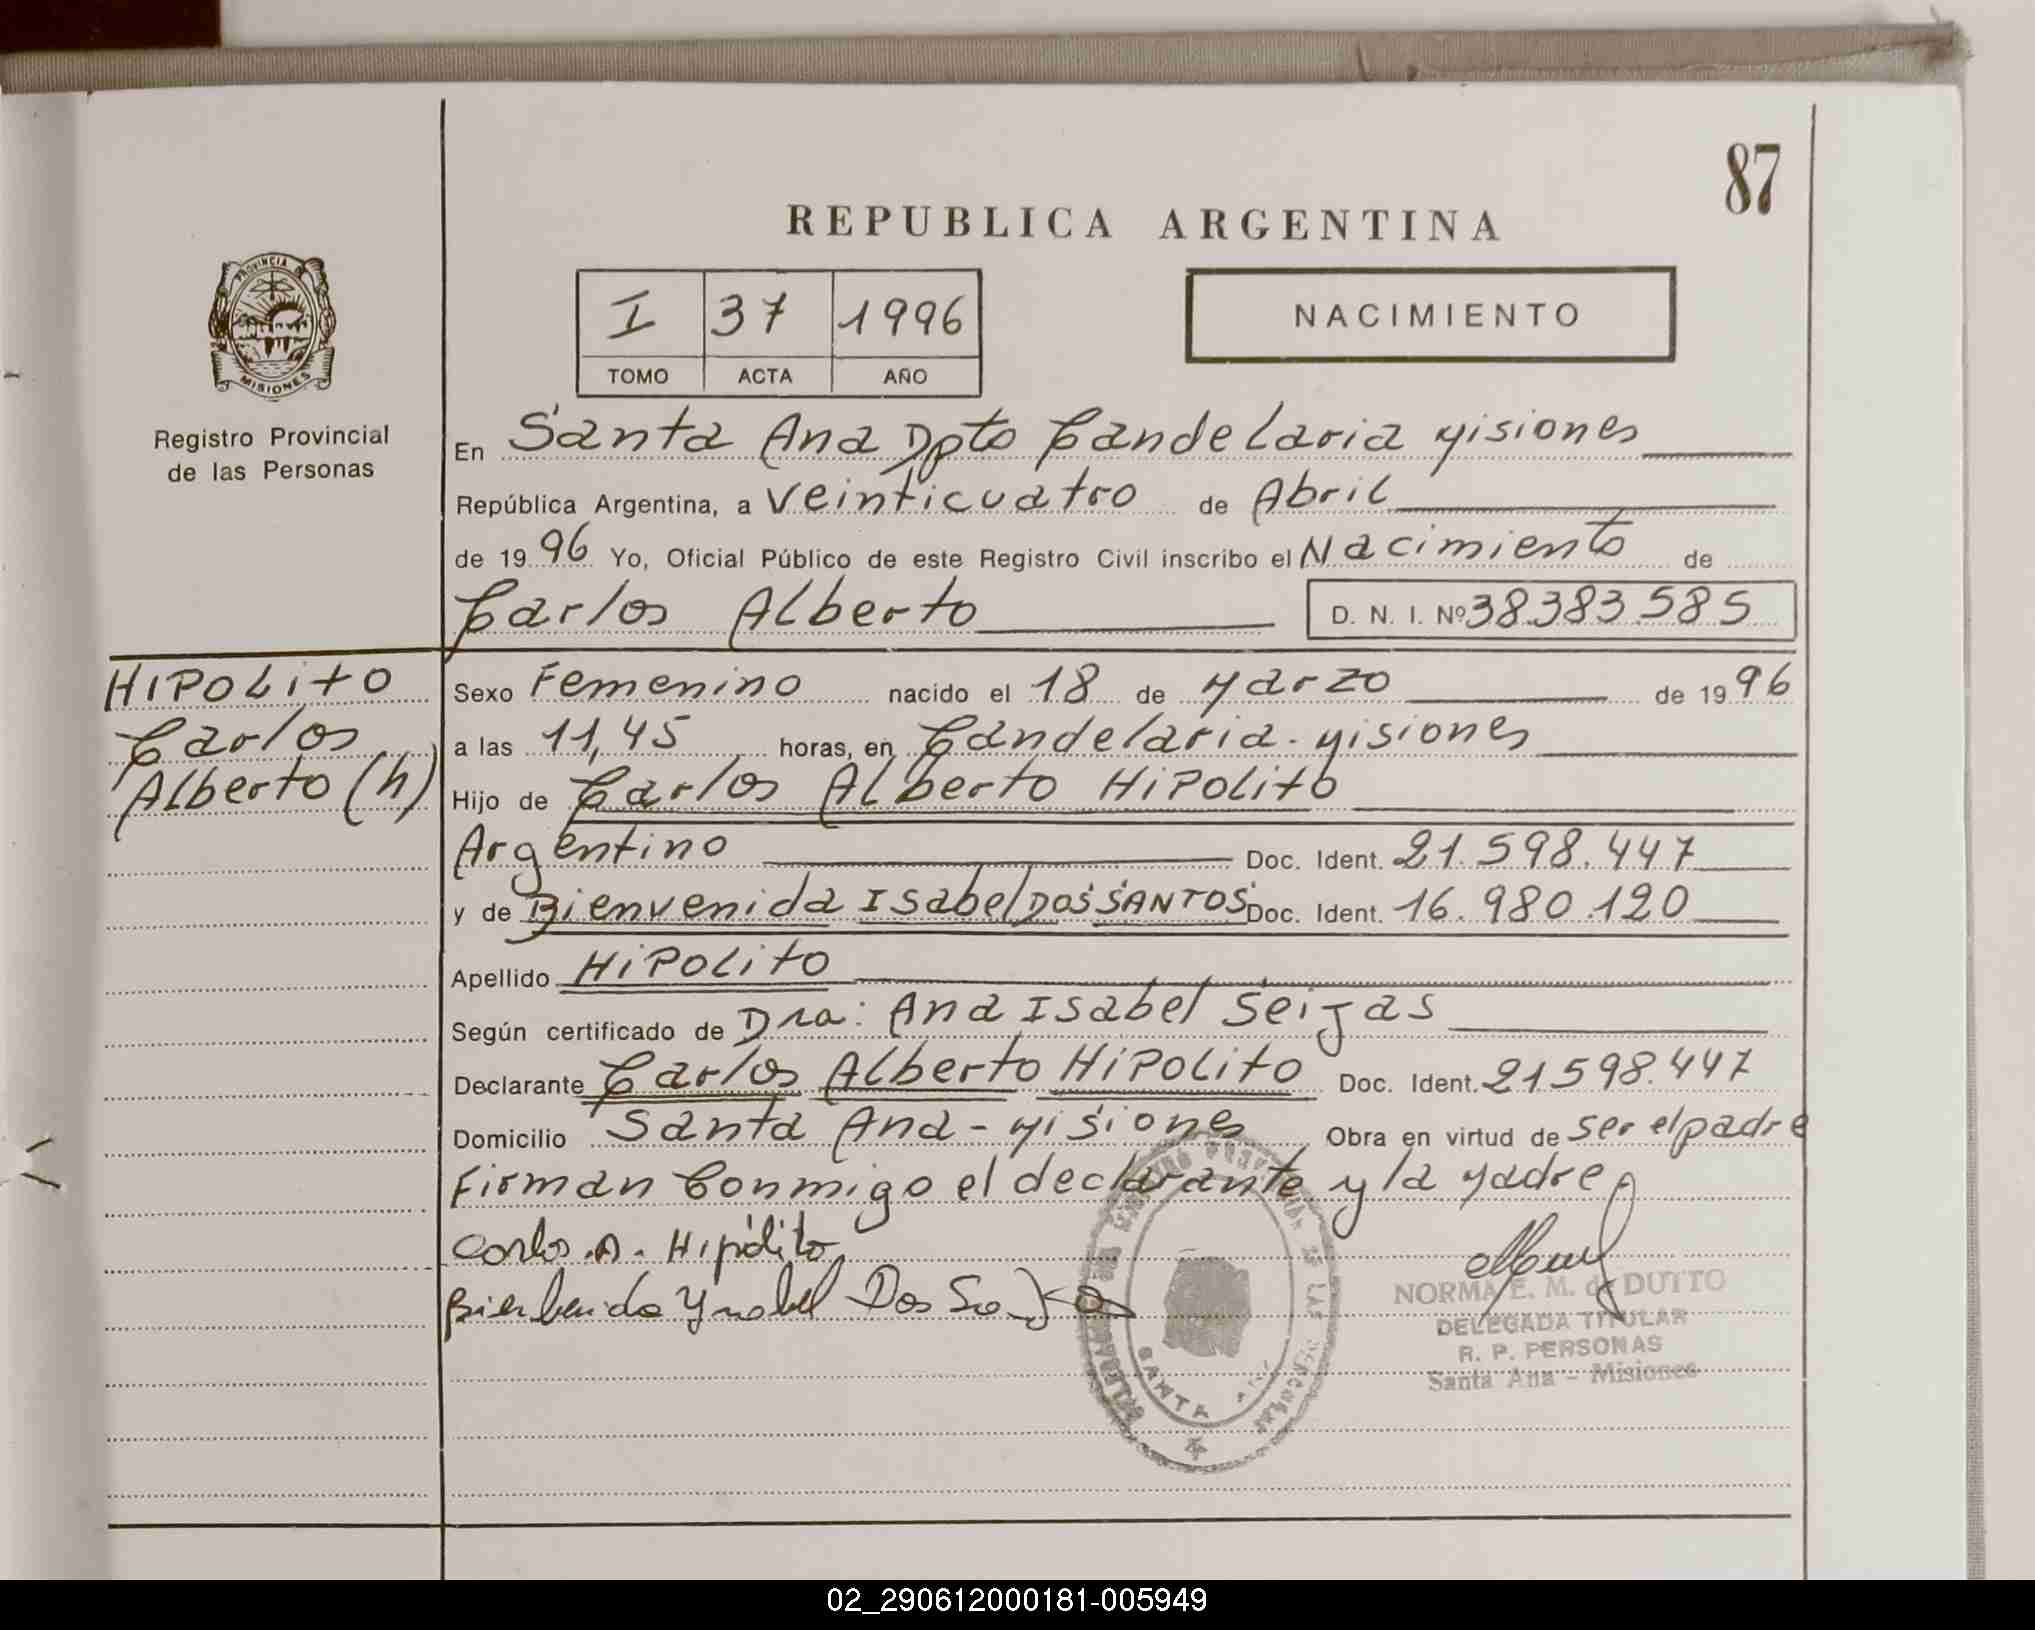 87
REPUBLICA ARGENTINA
PROVINCIA DE
MISIONES
Registro Provincial
de las Personas
I 37 1996
TOMO ACTA AÑO
NACIMIENTO
En Santa Ana Dpto Candelaria Misiones
República Argentina, a Veinticuatro de Abril
de 1996 Yo, Oficial Público de este Registro Civil inscribo el Nacimiento de
Carlos Alberto D. N. I. Nº 38.383.585
HIPOLITO
Carlos
Alberto (h)
Sexo Femenino nacido el 18 de Marzo de 1996
a las 11,45 horas, en Candelaria - Misiones
Hijo de Carlos Alberto HIPOLITO
Argentino Doc. Ident. 21.598.447
y de Bienvenida Isabel DOS SANTOS Doc. Ident. 16.980.120
Apellido HIPOLITO
Según certificado de Dra: Ana Isabel Seijas
Declarante Carlos Alberto HIPOLITO Doc. Ident. 21598.447
Domicilio Santa Ana - Misiones Obra en virtud de ser el padre
Firman Conmigo el declarante y la Madre
Carlos A. Hipólito
Bienbenida Ysabel Dos Santos
NORMA E. M. de DUTTO
DELEGADA TITULAR
R. P. PERSONAS
Santa Ana - Misiones
SANTA ANA
02_290612000181-005949